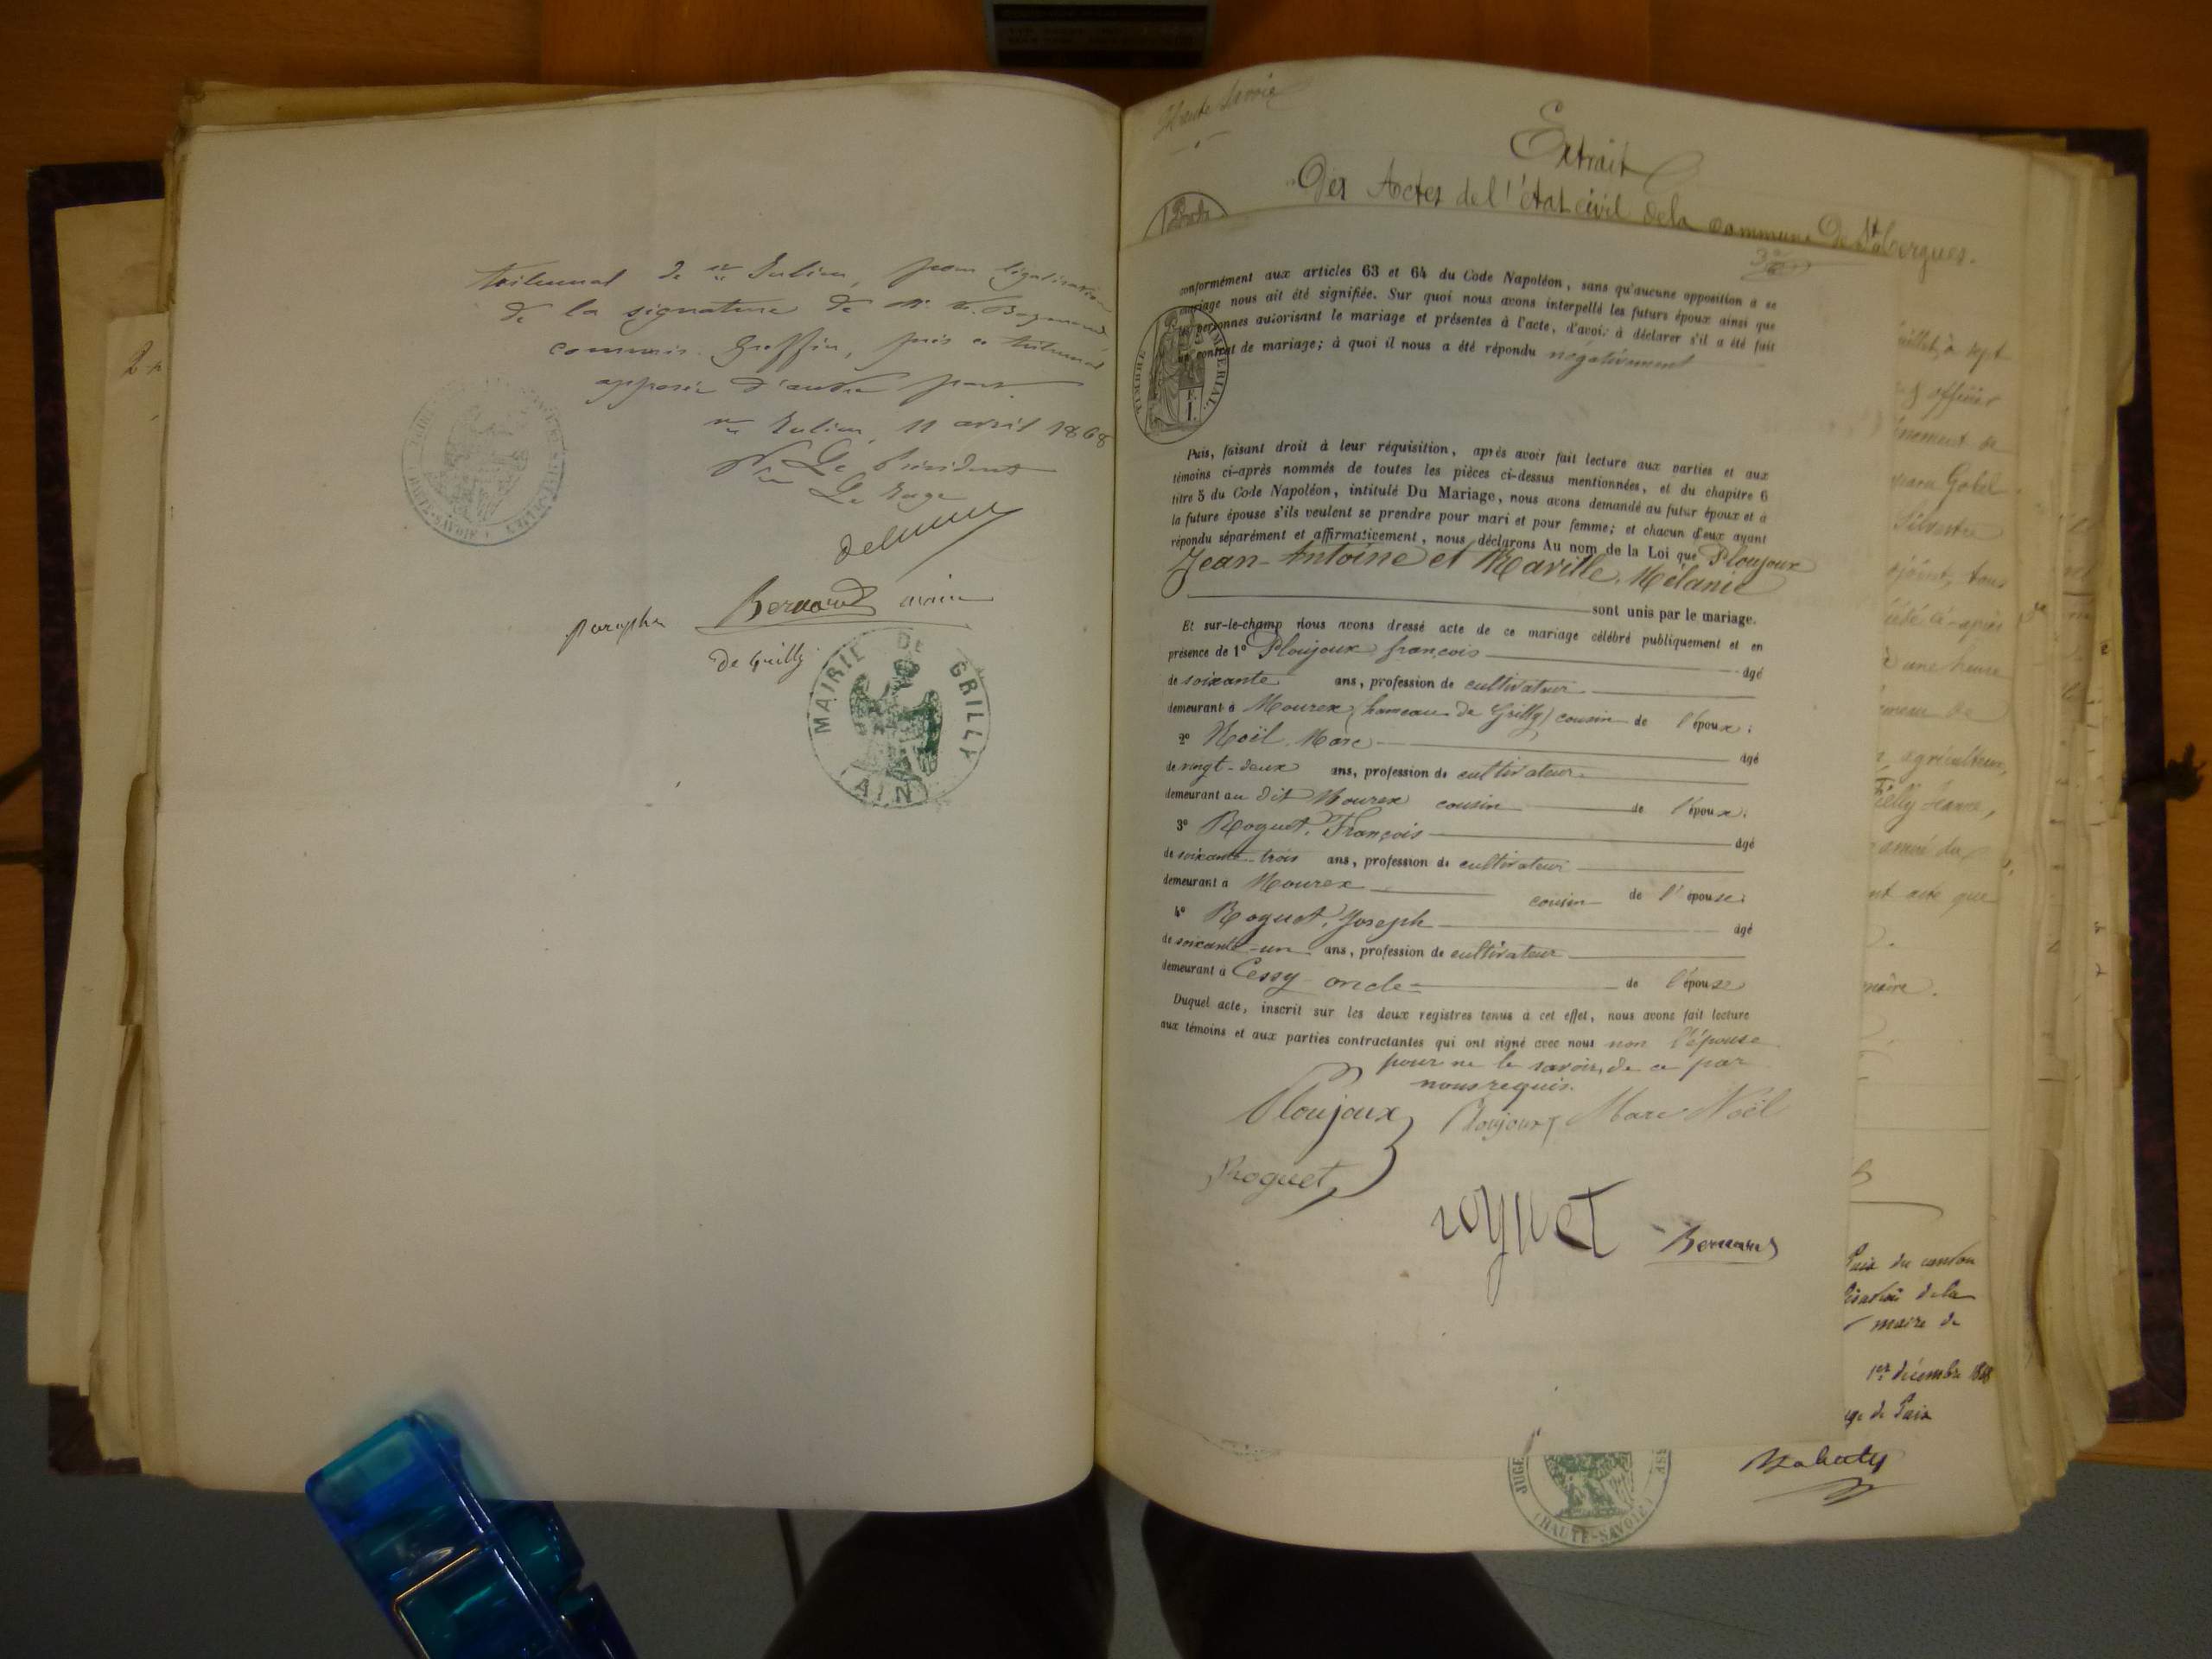 tribunal de St Julien, pour légalisation
de la signature de Mr
commis-Greffier, près ce tribunal
apposée d'autre part.
St Julien, 11 avril 1868
Le Président
Le Juge
Paraphé Bernard maire
de Grilly
MAIRIE DE GRILLY
(AIN)
Haute Savoie
Extrait
Des Actes de l'état civil de la commune De St Cergues.
conformément aux articles 63 et 64 du Code Napoléon, sans qu'aucune opposition à se
mariage nous ait été signifiée. Sur quoi nous avons interpellé les futurs époux ainsi que
les personnes autorisant le mariage et présentes à l'acte, d'avoir à déclarer s'il a été fait
un contrat de mariage; à quoi il nous a été répondu négativement
TIMBRE IMPÉRIAL
Puis, faisant droit à leur réquisition, après avoir fait lecture aux parties et aux
témoins ci-après nommés de toutes les pièces ci-dessus mentionnées, et du chapitre 6
titre 5 du Code Napoléon, intitulé Du Mariage, nous avons demandé au futur époux et à
la future épouse s'ils veulent se prendre pour mari et pour femme; et chacun d'eux ayant
répondu séparément et affirmativement, nous déclarons Au nom de la Loi que Ploujoux
Jean-Antoine et Maville, Mélanie
sont unis par le mariage.
Et sur-le-champ nous avons dressé acte de ce mariage célébré publiquement et en
présence de 1º Ploujoux françois âgé
de soixante ans, profession de cultivateur
demeurant à Mourex (hameau de Grilly) cousin de l'époux;
2º Noël Marc âgé
de vingt-deux ans, profession de cultivateur
demeurant au dit Mourex cousin de l'époux;
3º Roguet, François âgé
de soixante-trois ans, profession de cultivateur
demeurant à Mourex cousin de l'épouse;
4º Roguet, Joseph âgé
de soixante-un ans, profession de cultivateur
demeurant à Cessy oncle de l'épouse
Duquel acte, inscrit sur les deux registres tenus à cet effet, nous avons fait lecture
aux témoins et aux parties contractantes qui ont signé avec nous non l'épouse
pour ne le savoir, de ce par
nous requis.
Ploujoux Ploujoux Marc Noël
Roguet
roguet Bernard
juillet, à sept
officier
tous
ci-après
une heure
agriculteur,
acte que
maire.
Paix du canton
de la
maire de
1er décembre 1868
de Paix
JUGE
(HAUTE-SAVOIE)